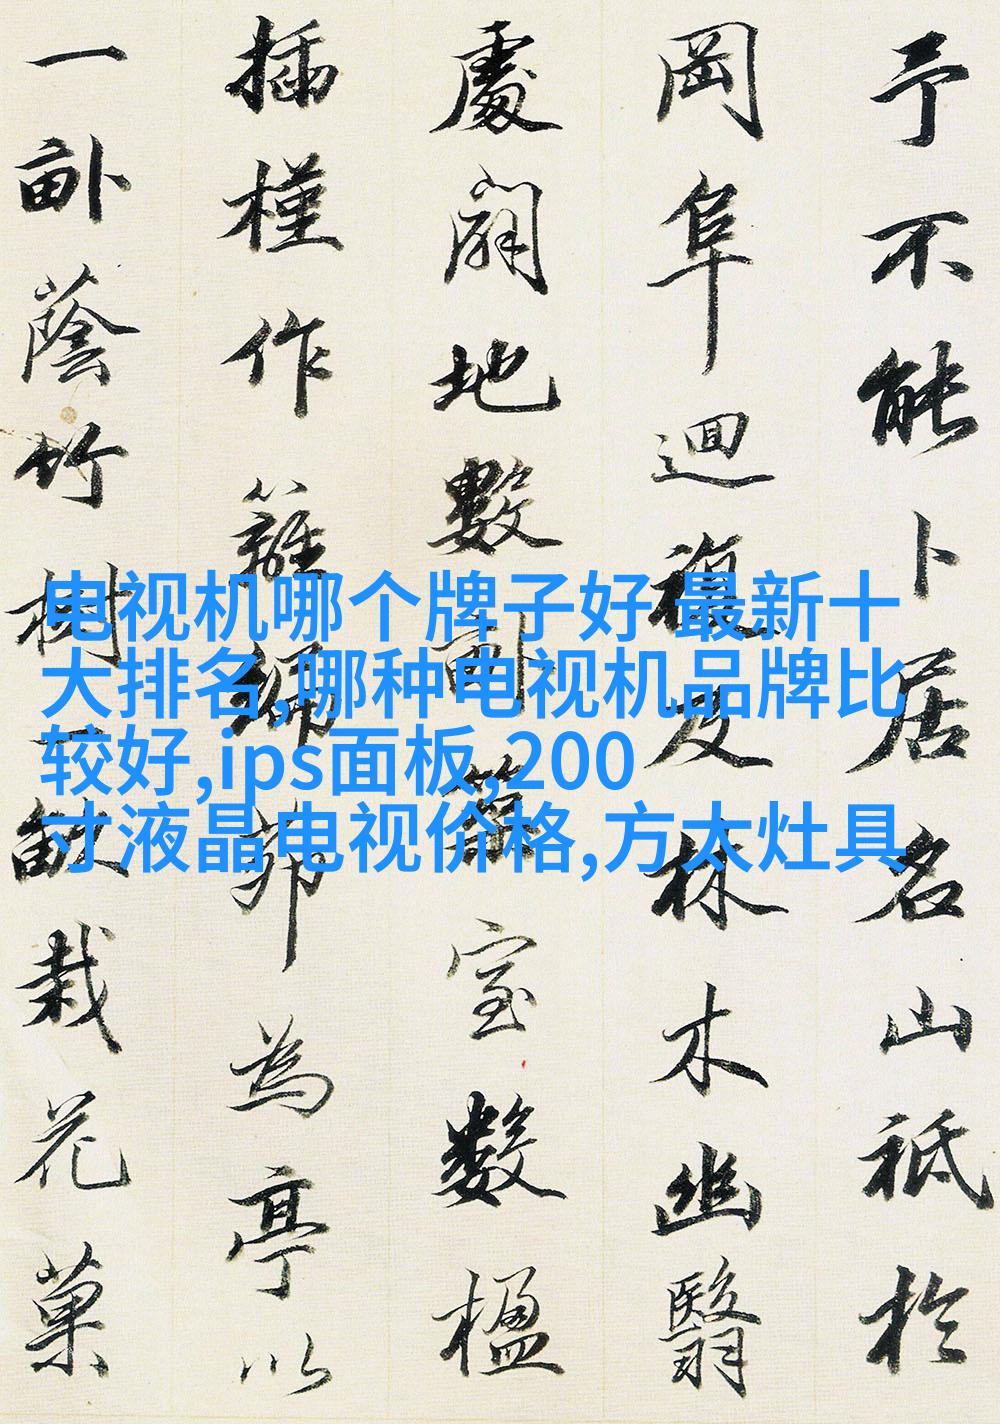 予不能卜居名山祗於
岡阜迴複及林木幽翳
處闢地數畝築室數楹
插槿作籬編茆為亭以
一畝蔭竹樹一畝栽花菓
电视机哪个牌子好 最新十
大排名,哪种电视机品牌比
较好,ips面板,200
寸液晶电视价格,方太灶具